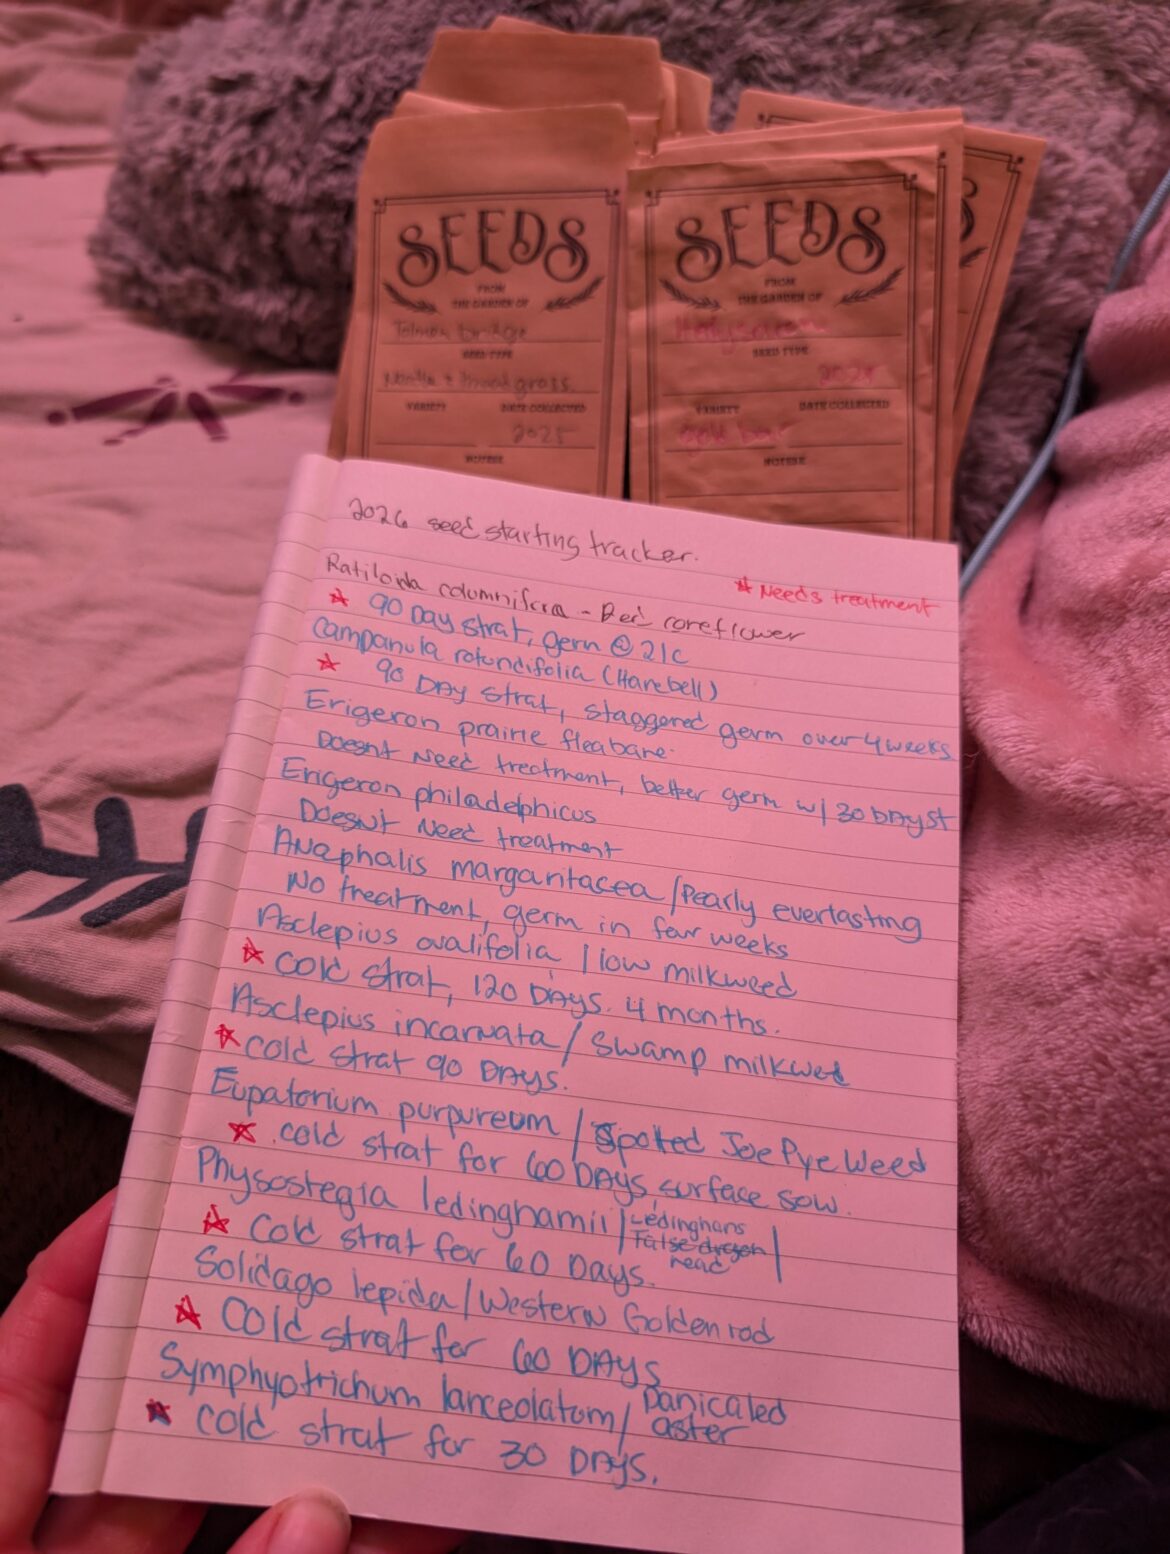 SEEDS
FROM
THE GARDEN OF
Tolmon bridge
SEED TYPE
grass
VARIETY DATE COLLECTED
2025
NOTES
SEEDS
FROM
THE GARDEN OF
SEED TYPE
VARIETY DATE COLLECTED
gold bar
NOTES
S
2026 seed starting tracker.
☆ Needs treatment
Ratiloida columnifera - Red coneflower
☆ 90 Day strat, germ @ 21C
Campanula rotundifolia (Harebell)
☆ 90 DAY strat, staggered germ over 4 weeks
Erigeron prairie fleabane.
Doesnt Need treatment, better germ w/ 30 DAY st
Erigeron philadelphicus
Doesnt Need treatment
Anaphalis margaritacea / Pearly everlasting
No treatment, germ in few weeks
Asclepius ovalifolia / low milkweed
☆ Cold strat, 120 DAYS. 4 months.
Asclepius incarnata / Swamp milkwed
☆ Cold strat 90 DAYS.
Eupatorium purpureum / Spotted Joe Pye Weed
☆ Cold strat for 60 DAYS, surface sow.
Physostegia ledinghamii / Ledinghans
False dragon
head
☆ Cold strat for 60 DAYS.
Solidago lepida / Western Goldenrod
☆ Cold strat for 60 DAYS
Symphyotrichum lanceolatum / Panicaled
aster
☆ Cold strat for 30 DAYS.